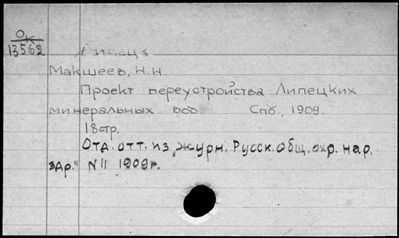 О
К
13562
Липецк
Макшеев, Н.Н.
Проект переустройства Липецких
минеральных вод Спб., 1909.
18стр.
Отд. отт. из „журн. Русск. общ. охр. нар.
здр." N11 1909г.